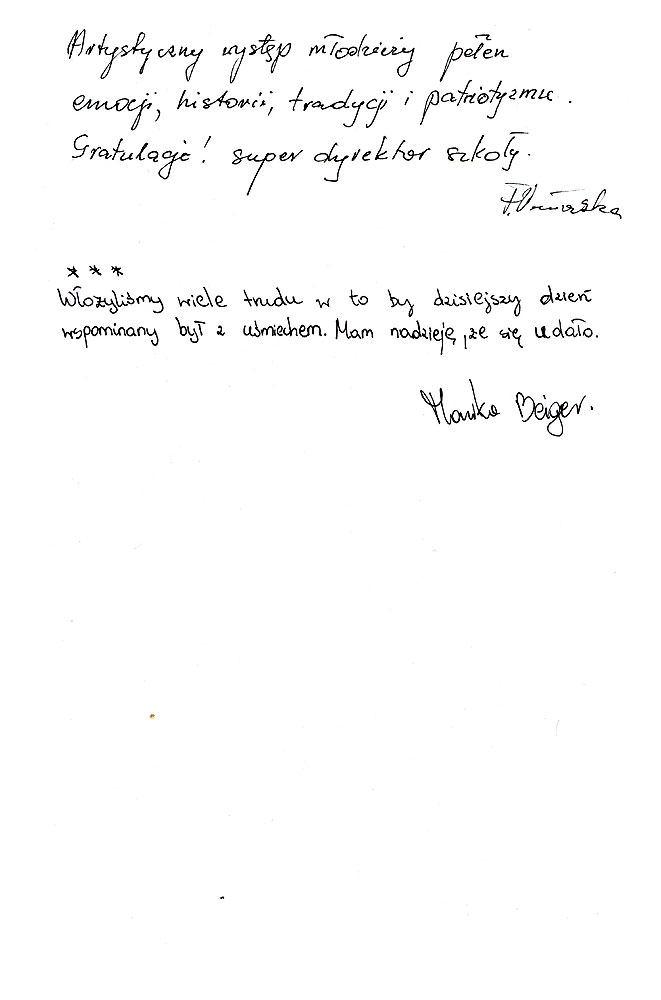 Artystyczny występ młodzieży pełen
emocji, historii, tradycji i patriotyzmu.
Gratulacje! super dyrektor szkoły.
***
Włożyliśmy wiele trudu w to by dzisiejszy dzień
wspominany był z uśmiechem. Mam nadzieję, że się udało.
Beiger.